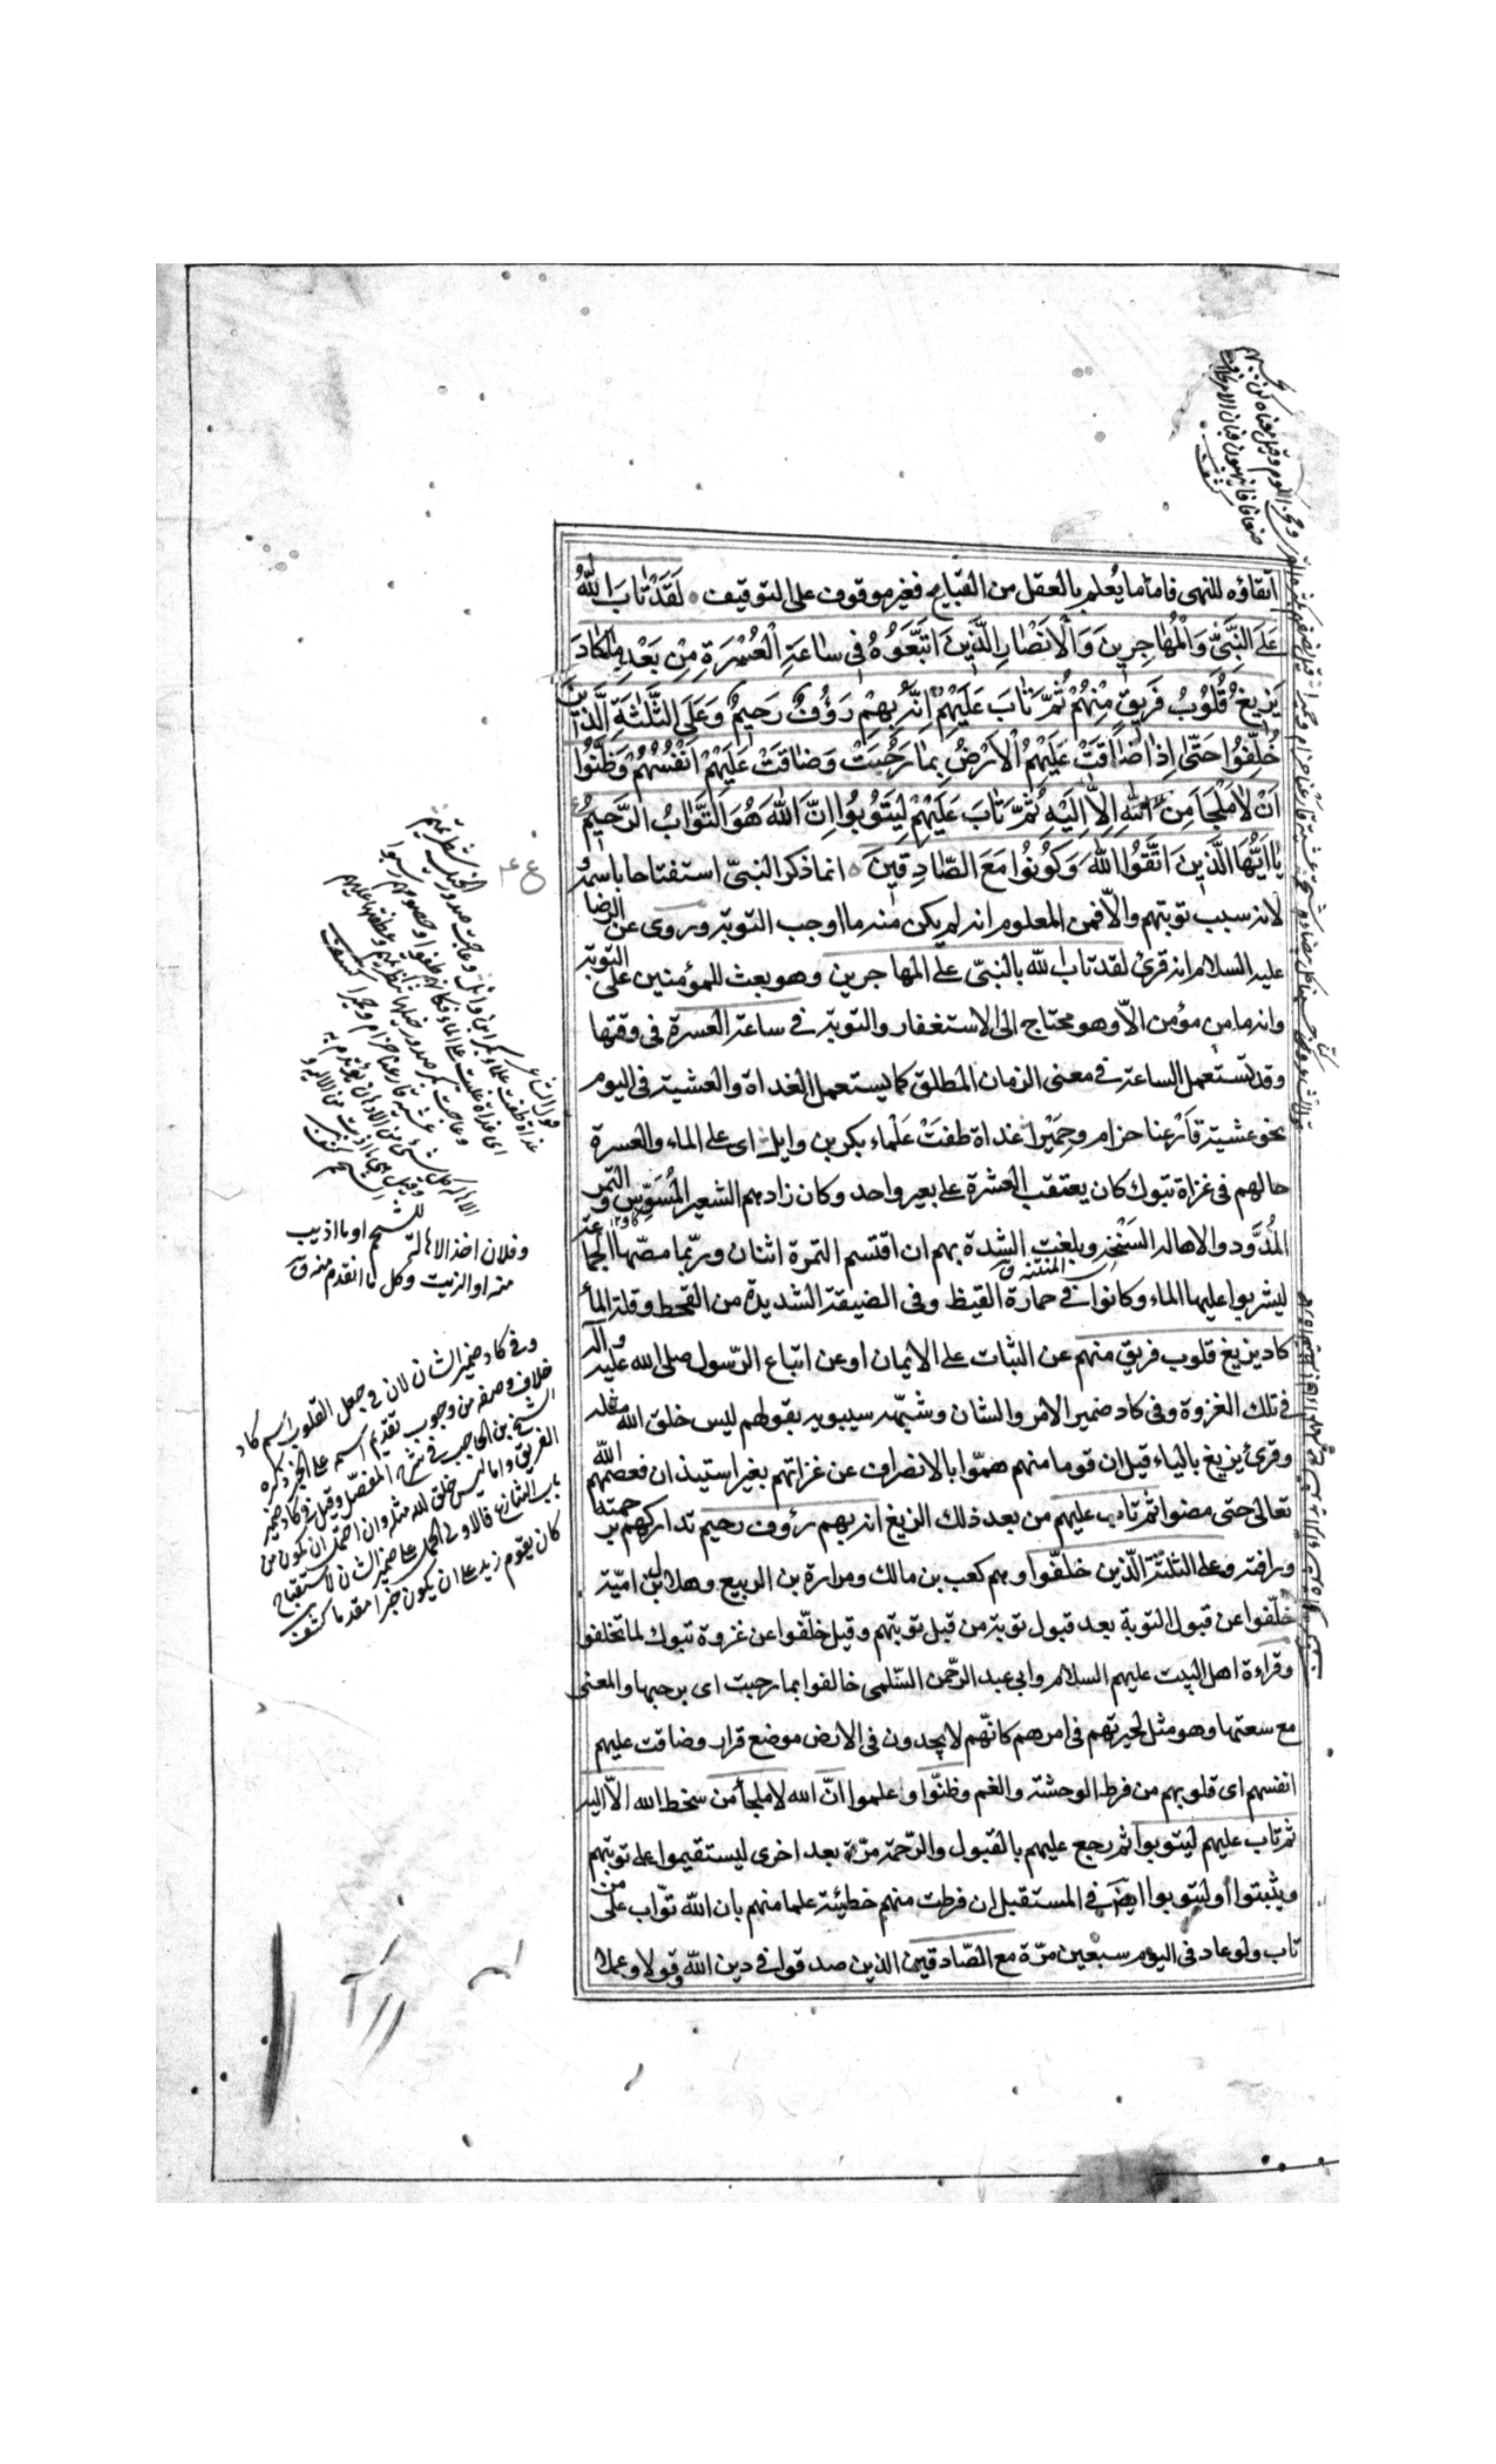 اتقاؤه للنهى فاماما يُعلم بالعقل من القبايح فغير موقوف على التوقيف لَقَدْ تَابَ اللّٰهُ
عَلَى النَّبِىِّ وَالْمُهَاجِرِينَ وَالْاَنْصَارِ الَّذِينَ اتَّبَعُوهُ فِى سَاعَةِ الْعُسْرَةِ مِنْ بَعْدِ مَا كَادَ
يَزِيغُ قُلُوبُ فَرِيقٍ مِنْهُمْ ثُمَّ تَابَ عَلَيْهِمْ اِنَّهُ بِهِمْ رَؤُفٌ رَحِيمٌ وَعَلَى الثَّلٰثَةِ الَّذِينَ
خُلِّفُوا حَتّٰى اِذَا ضَاقَتْ عَلَيْهِمُ الْاَرْضُ بِمَا رَحُبَتْ وَضَاقَتْ عَلَيْهِمْ اَنْفُسُهُمْ وَظَنُّوا
اَنْ لَا مَلْجَاَ مِنَ اللّٰهِ اِلَّا اِلَيْهِ ثُمَّ تَابَ عَلَيْهِمْ لِيَتُوبُوا اِنَّ اللّٰهَ هُوَ التَّوَّابُ الرَّحِيمُ
يَا اَيُّهَا الَّذِينَ اتَّقُوا اللّٰهَ وَكُونُوا مَعَ الصَّادِقِينَ انما ذكر النبىّ استفتاحا باسمه و
لانه سبب توبتهم والّا فمن المعلوم انه لم يكن منه ما اوجب التوبة وروى عن الرضا
عليه السلام انه قرئ لقد تاب الله بالنبىّ على المهاجرين وهو بعث للمؤمنين على التوبة
وانه ما من مؤمن الاّ وهو محتاج الى الاستغفار والتوبة فى ساعة العسرة فى وقتها
وقد تستعمل الساعة فى معنى الزمان المطلق كما يستعمل الغداة والعشية فى اليوم
نحو عشية قارعنا حزام وحِمْيَرا غداة طفتْ عَلْماء بكر بن وايل اى على الماء والعسرة
حالهم فى غزاة تبوك كان يعتقب العشرة على بعير واحد وكان زادهم الشعير المُسَوّس و التمر
المُدَوّد والاهالة السَنْخة وبلغت الشدة بهم ان اقتسم التمرة اثنان وربّما مصّها الجماعة
المنتنة ق
ليشربوا عليها الماء وكانوا فى حمارة القيظ وفى الضيقة الشديدة من القحط وقلة الماء
كاد يزيغ قلوب فريق منهم عن الثبات على الايمان او عن اتباع الرّسول صلى الله عليه واله
فى تلك الغزوة وفى كاد ضمير الامر والشان وشبّهه سيبويه بقولهم ليس خلق الله مثله
وقرئ يزيغ بالياء قيل ان قوما منهم همّوا بالانصراف عن غزاتهم بغير استيذان فعصمهم الله
تعالى حتى مضوا ثم تاب عليهم من بعد ذلك الزيغ انه بهم رؤوف رحيم تداركهم برحمته
ورافته وعلى الثلثة الّذين خلفّوا وهم كعب بن مالك ومرارة بن الربيع وهلال بن اميّة
خلّفوا عن قبول التوبة بعد قبول توبة من قبل توبتهم وقيل خلّفوا عن غزوة تبوك لما تخلفوا
وقراءة اهل البيت عليهم السلام وابى عبد الرّحمن السّلمى خالفوا بما رحبت اى برحبها والمعنى
مع سعتها وهو مثل لحيرتهم فى امرهم كانّهم لا يجدون فى الارض موضع قرار وضاقت عليهم
انفسهم اى قلوبهم من فرط الوحشة والغم وظنّوا وعلموا انّ الله لا ملجأ من سخط الله الاّ اليه
ثم تاب عليهم ليتوبوا ثم رجع عليهم بالقبول والرّحمة مرّة بعد اخرى ليستقيموا على توبتهم
ويثبتوا او ليتوبوا ايضا فى المستقبل ان فرطت منهم خطيئة علما منهم بان الله توّاب على من
تاب ولو عاد فى اليوم سبعين مرّة مع الصّادقين الذين صدقوا فى دين الله قولا وعملا
وفلان اخذ الاهالة للشحم او ما اذيب
منه او الزيت وكل ما ائتدم منه ق
وفى كاد ضمير الشان لان فى جعل القلوب اسم كاد
خلاف وصفه من وجوب تقديم اسمه على الخبر ذكره
الشيخ بن الحاجب فى شرح المفصل وقيل فى كاد ضمير
الفريق واما ليس خلق الله مثله وان احتمل ان يكون من
باب الشان فالاولى الحمل على ضمير الشان لاستقباح
كان يقوم زيد على ان يكون خبرا مقدما كشف